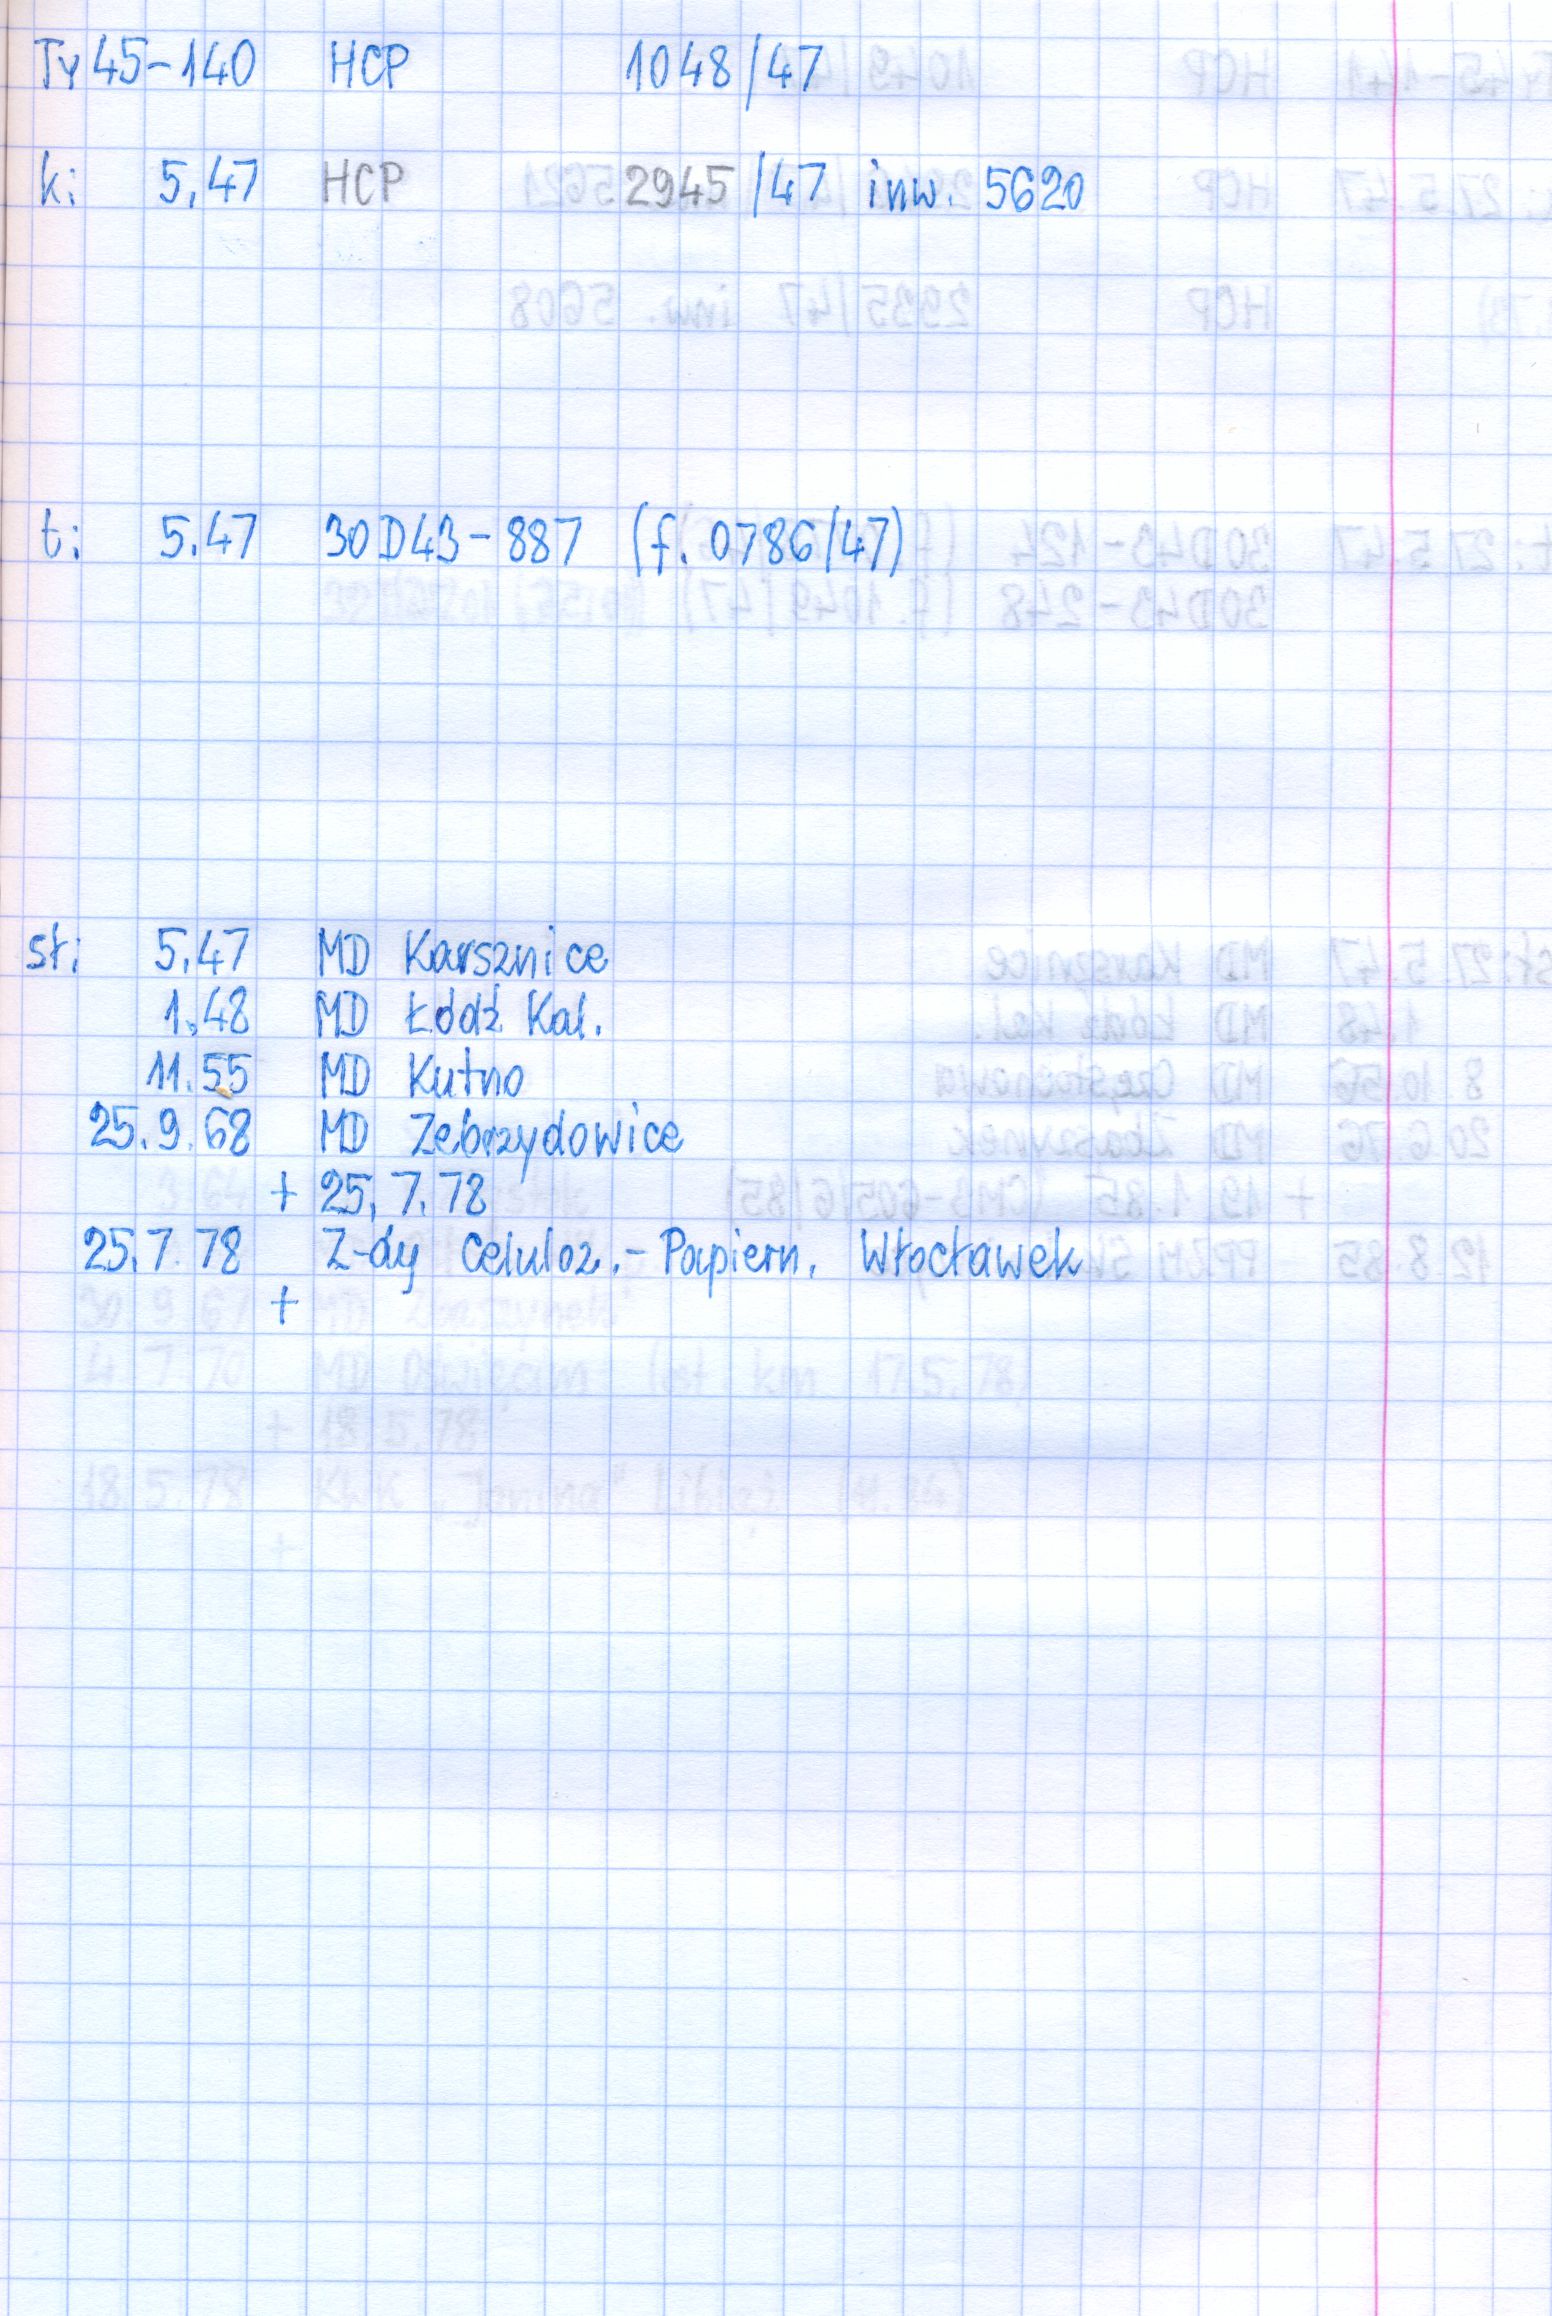 Ty45-140 HCP 1048/47
k: 5.47 HCP 2945/47 inw. 5620
t: 5.47 30D43-887 (f. 0786/47)
st: 5.47 MD Karsznice
1.48 MD Łódź Kal.
11.55 MD Kutno
25.9.68 MD Zebrzydowice
+ 25.7.78
25.7.78 Z-dy Celuloz.-Papiern. Włocławek
+